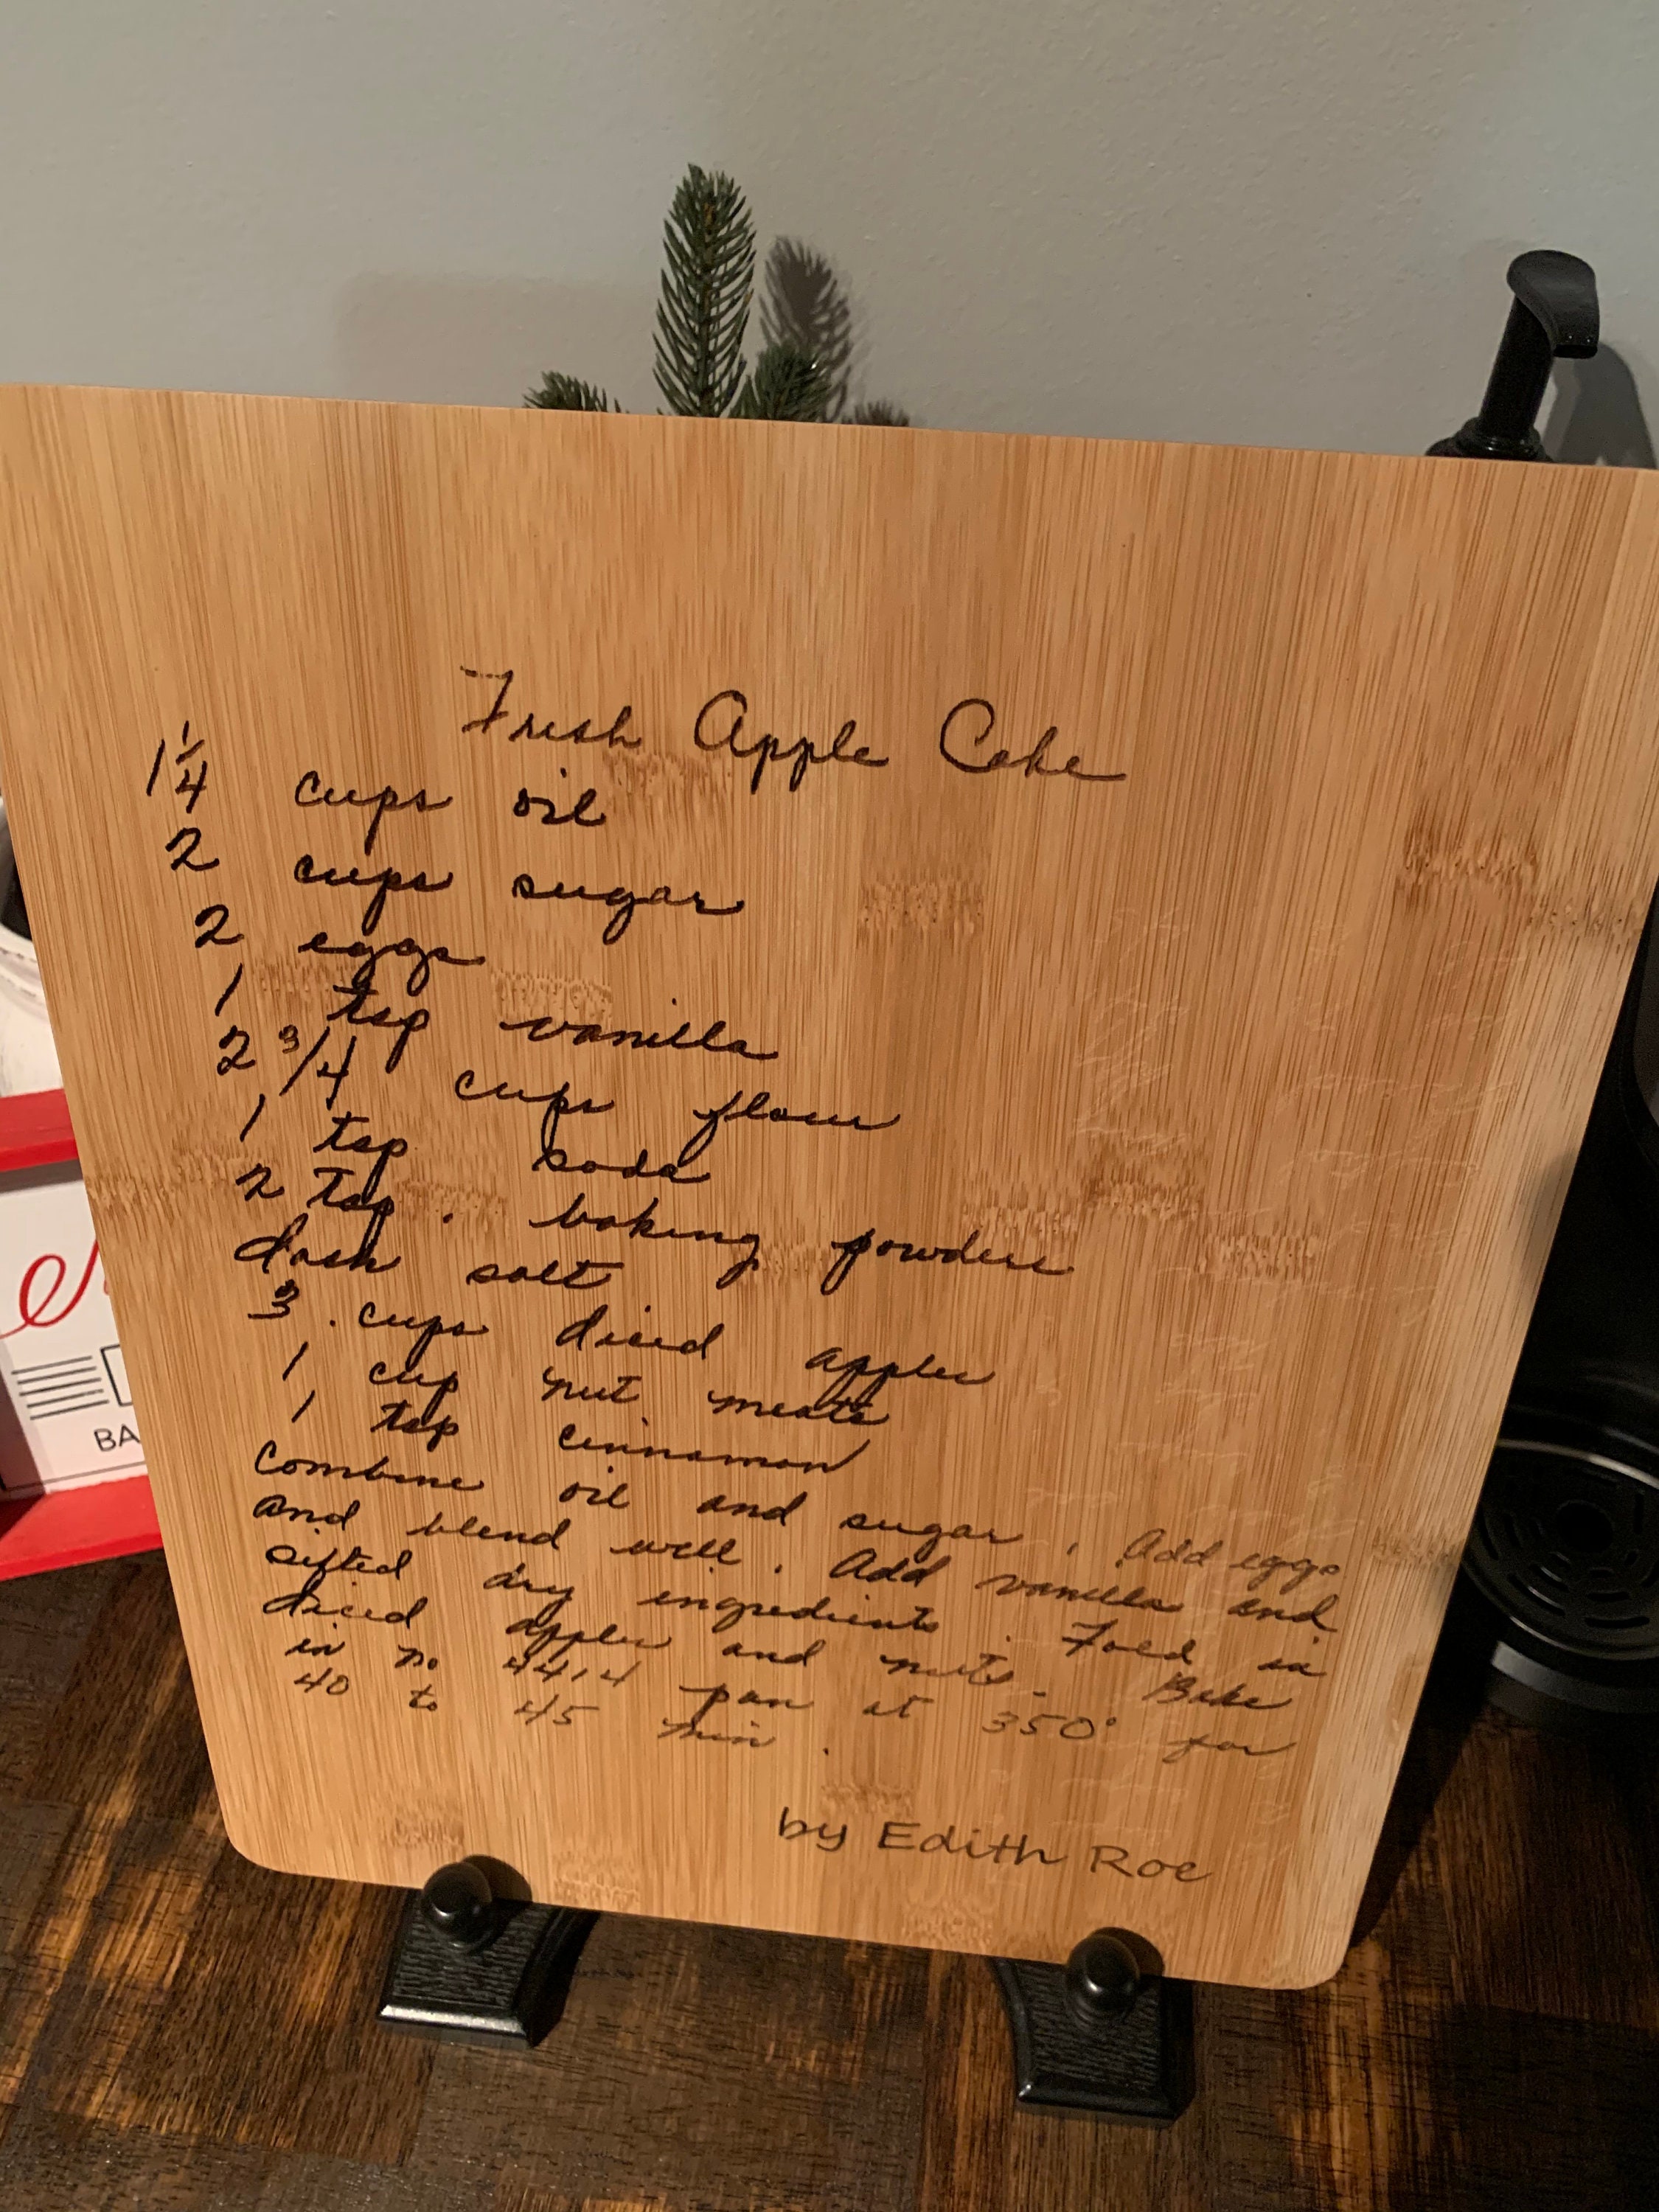 Fresh Apple Cake
1 1/4 cups oil
2 cups sugar
2 eggs
1 tsp vanilla
2 3/4 cups flour
1 tsp soda
2 Tsp. baking powder
dash salt
3 cups diced apples
1 cup nut meats
1 tsp cinnamon
Combine oil and sugar. Add eggs
and blend well. Add vanilla and
sifted dry ingredients. Fold in
diced apples and nuts. Bake
in no 4414 pan at 350° for
40 to 45 min.
by Edith Roe
BA